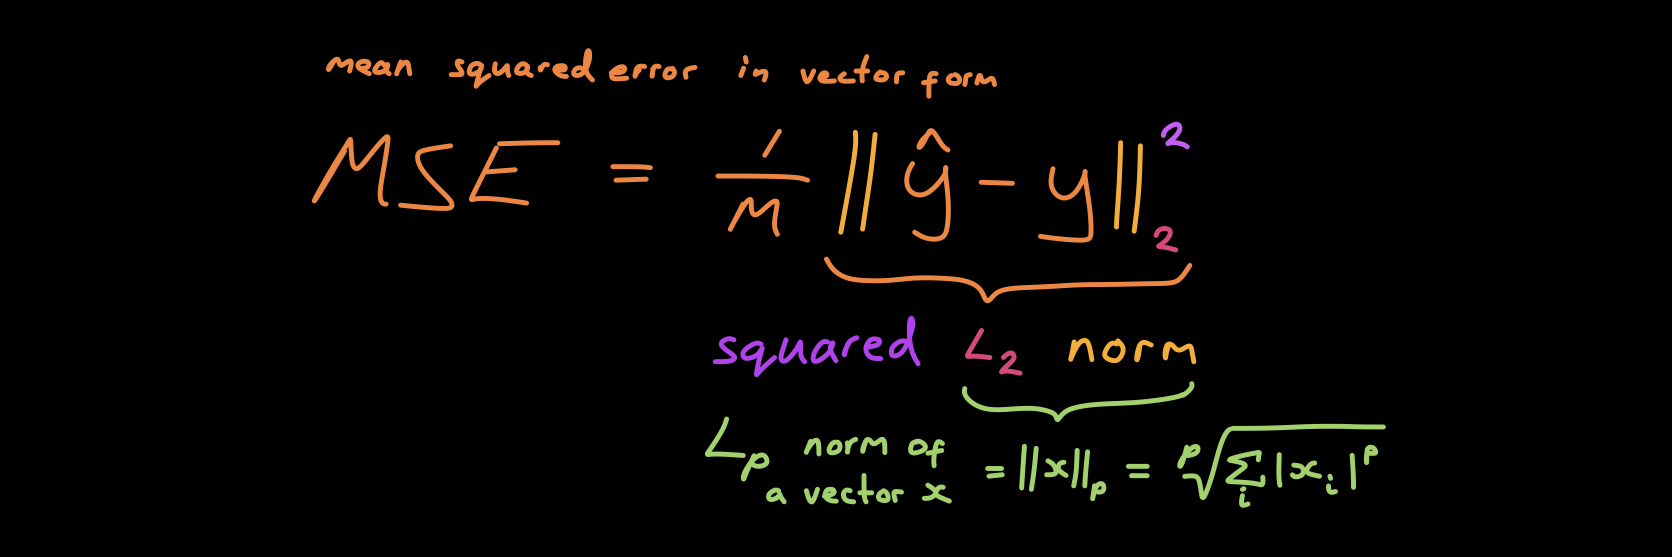 mean squared error in vector form
MSE = 1/m ||ŷ - y||₂²
squared L₂ norm
Lₚ norm of a vector x = ||x||ₚ = ᵖ√∑ᵢ|xᵢ|ᵖ